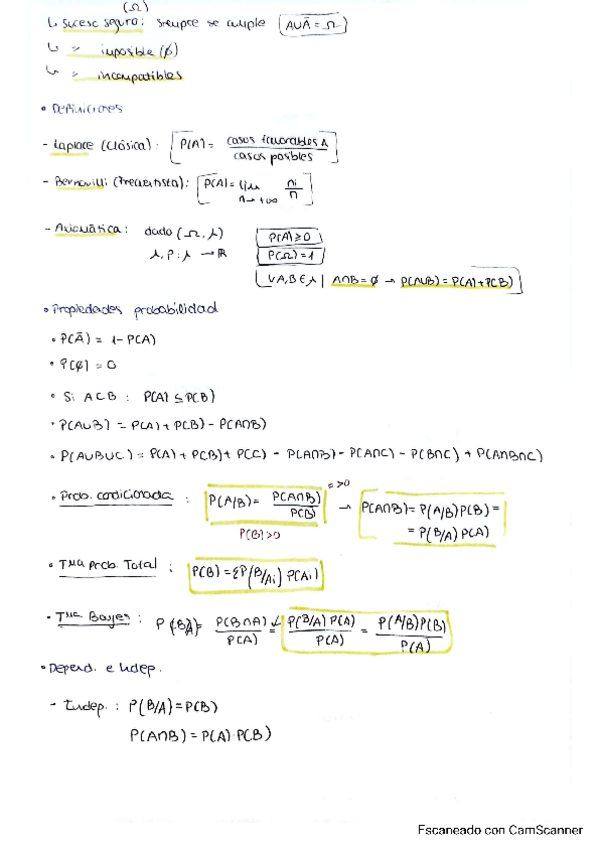 (Ω)
↳ Suceso seguro: siempre se cumple (AUĀ = Ω)
↳ " imposible (∅)
↳ " incompatibles
• Definiciones
- Laplace (Clásica): P(A) = casos favorables A / casos posibles
- Bernouilli (frecuentista): P(A) = lim n→+∞ ni/n
- Axiomática: dado (Ω, λ) P(A) ≥ 0
λ, P: λ → ℝ P(Ω) = 1
∀A,B ∈ λ | A∩B = ∅ → P(AUB) = P(A) + P(B)
• Propiedades probabilidad
• P(Ā) = 1 - P(A)
• P(∅) = 0
• Si A⊂B : P(A) ≤ P(B)
• P(AUB) = P(A) + P(B) - P(A∩B)
• P(AUBUC) = P(A) + P(B) + P(C) - P(A∩B) - P(A∩C) - P(B∩C) + P(A∩B∩C)
• Prob. condicionada : P(A/B) = P(A∩B) / P(B) → P(A∩B) = P(A/B) P(B) =
P(B)>0 = P(B/A) P(A)
• Tma Prob. Total : P(B) = Σ P(B/Ai) P(Ai)
• Tma. Bayes : P(B/A) = P(B∩A) / P(A) = P(B/A) P(A) / P(A) = P(A/B) P(B) / P(A)
• Depend. e Indep.
- Indep. : P(B/A) = P(B)
P(A∩B) = P(A)·P(B)
Escaneado con CamScanner